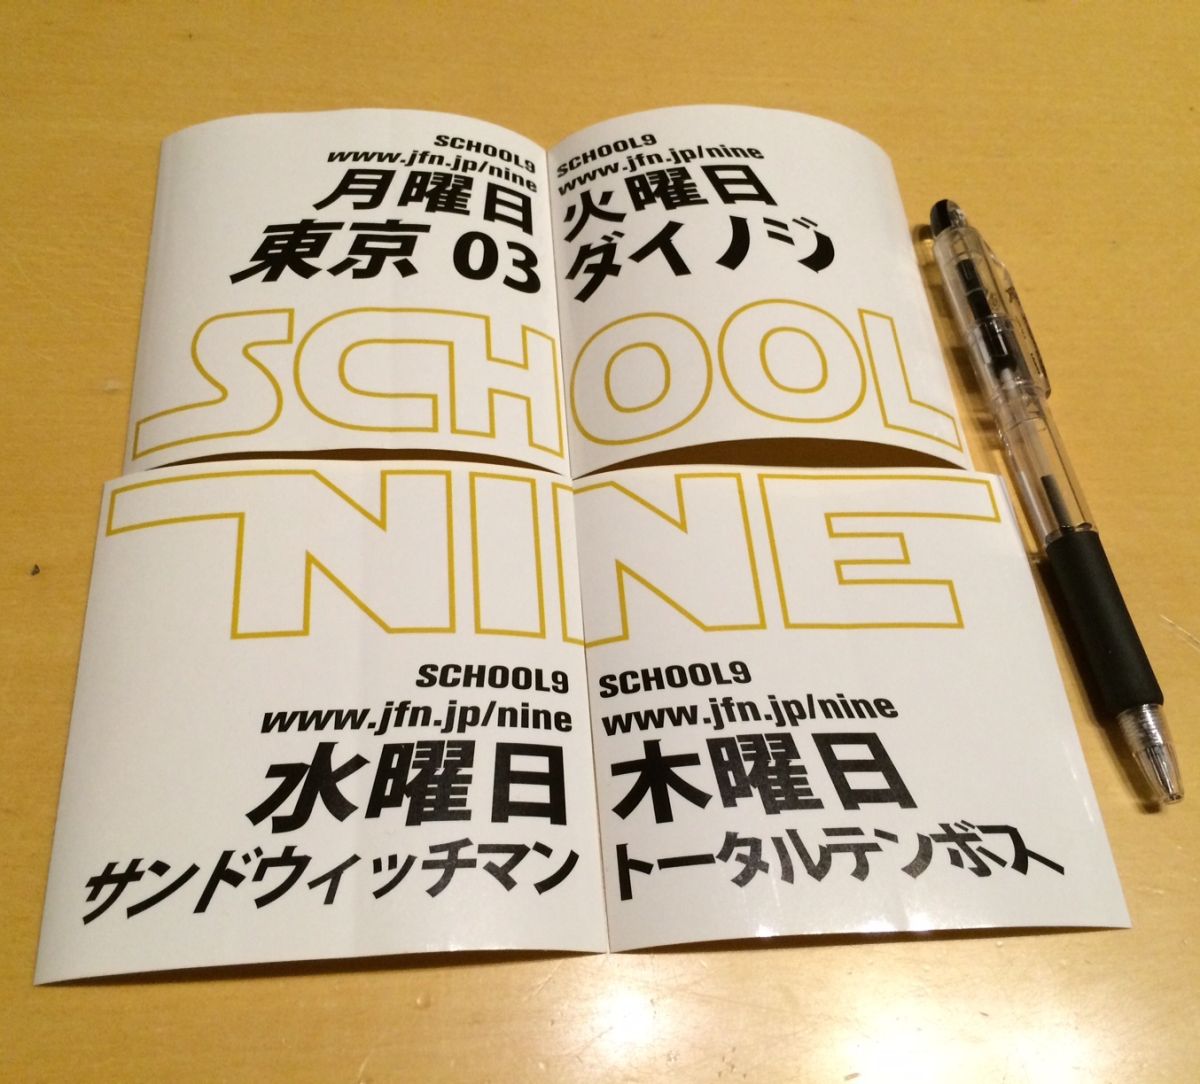 SCHOOL9
www.jfn.jp/nine
月曜日
東京 03
SCHOOL9
www.jfn.jp/nine
火曜日
ダイノジ
SCHOOL
NINE
SCHOOL9
www.jfn.jp/nine
水曜日
サンドウィッチマン
SCHOOL9
www.jfn.jp/nine
木曜日
トータルテンボス